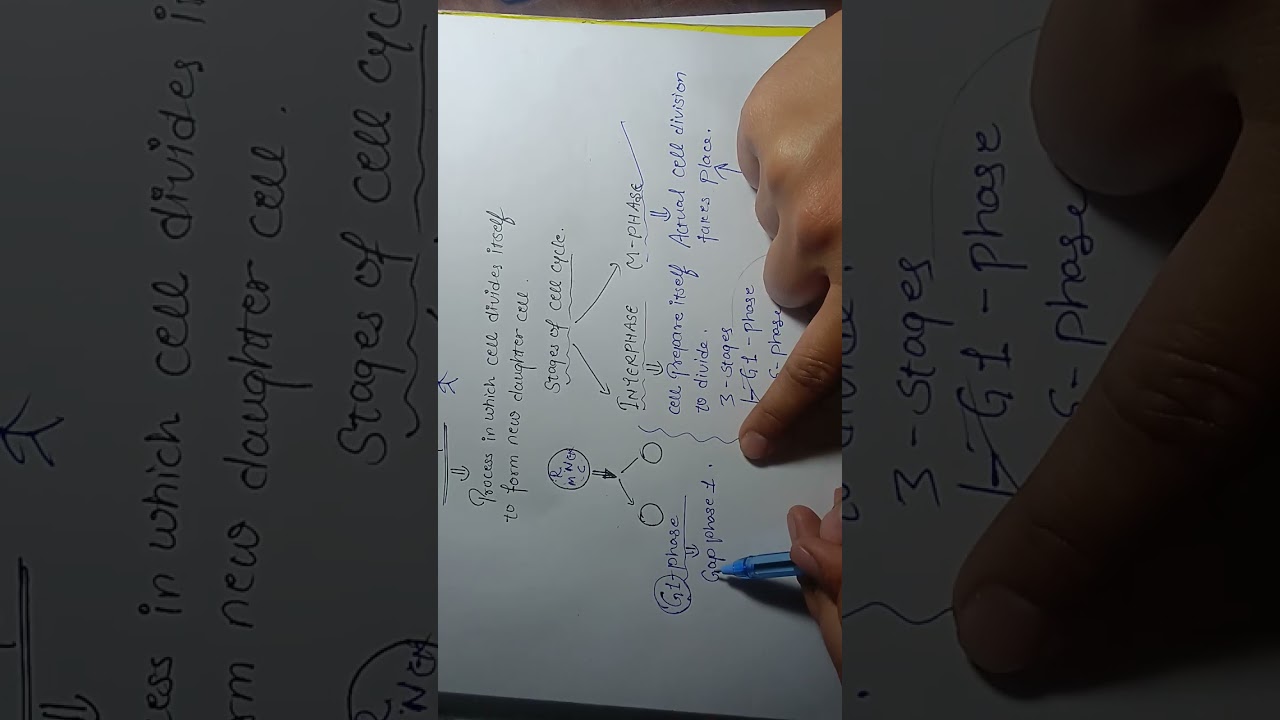 Process in which cell divides itself
to form new daughter cell.
Stages of cell cycle.
INTERPHASE
M-PHASE
cell prepare itself
to divide.
3-stages
1-G1-phase
Actual cell division
takes place.
R
N
M
C
G1-phase
Gap phase 1.